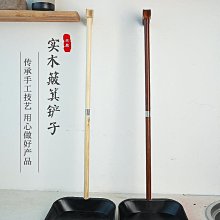 实木簸箕铲子
传承手工技艺
用心做好产品